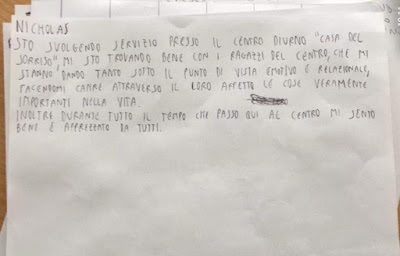 NICHOLAS
STO SVOLGENDO SERVIZIO PRESSO IL CENTRO DIURNO "CASA DEL
SORRISO", MI STO TROVANDO BENE CON I RAGAZZI DEL CENTRO, CHE MI
STANNO DANDO TANTO SOTTO IL PUNTO DI VISTA EMOTIVO E RELAZIONALE,
FACENDOMI CAPIRE ATTRAVERSO IL LORO AFFETTO LE COSE VERAMENTE
IMPORTANTI NELLA VITA.
INOLTRE DURANTE TUTTO IL TEMPO CHE PASSO QUI AL CENTRO MI SENTO
BENE E APPREZZATO DA TUTTI.